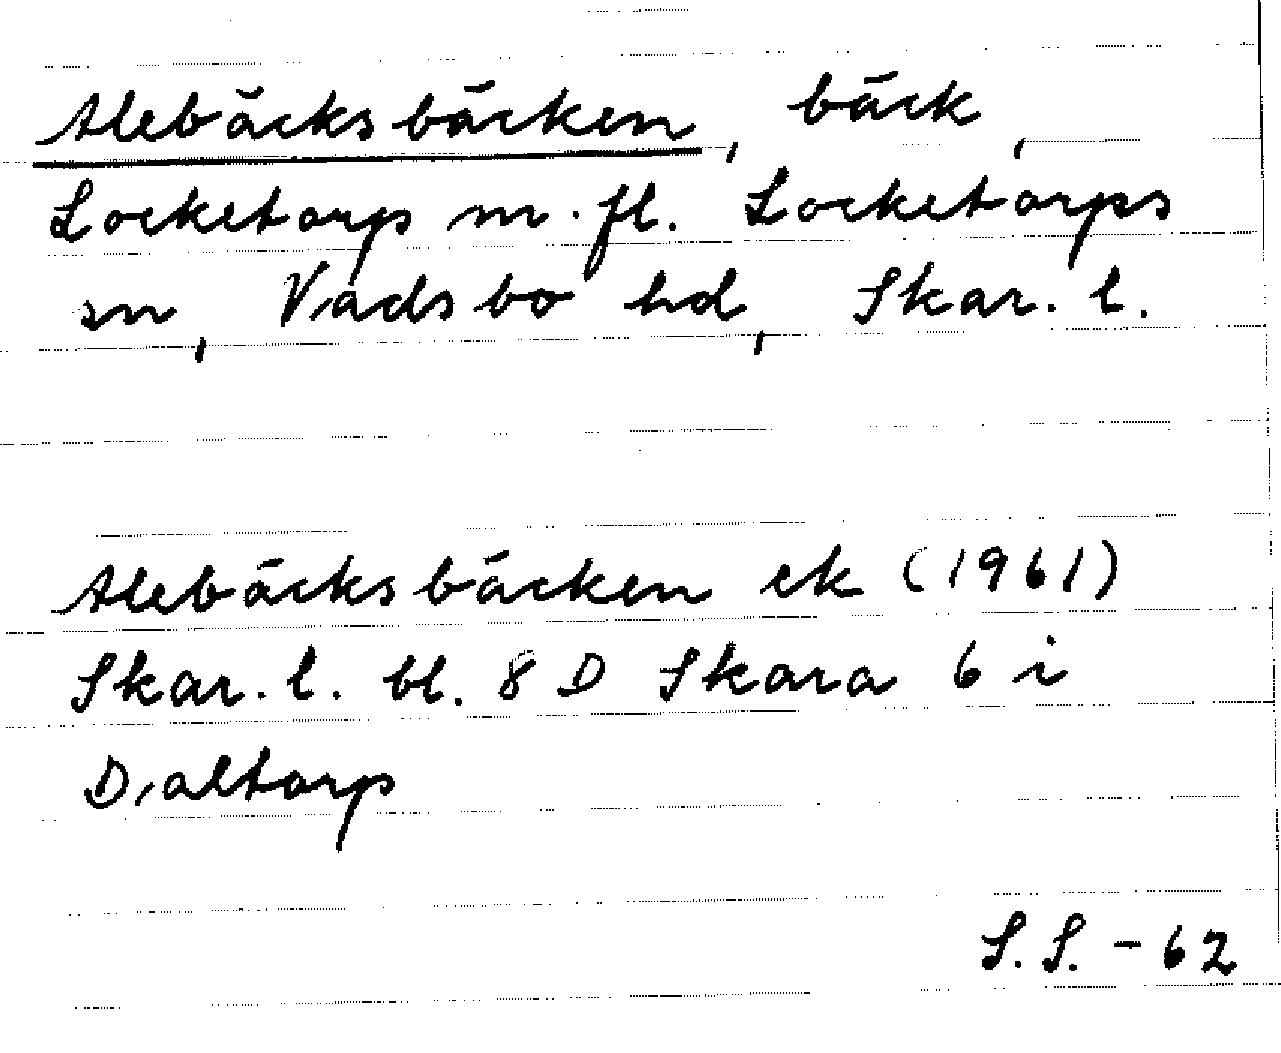 Alebäcksbäcken, bäck,
Locketorp m. fl. Locketorps
sn, Vadsbo hd, Skar. l.
Alebäcksbäcken ek (1961)
Skar. l. bl. 8 D Skara 6 i
Daltorp
S.S. - 62